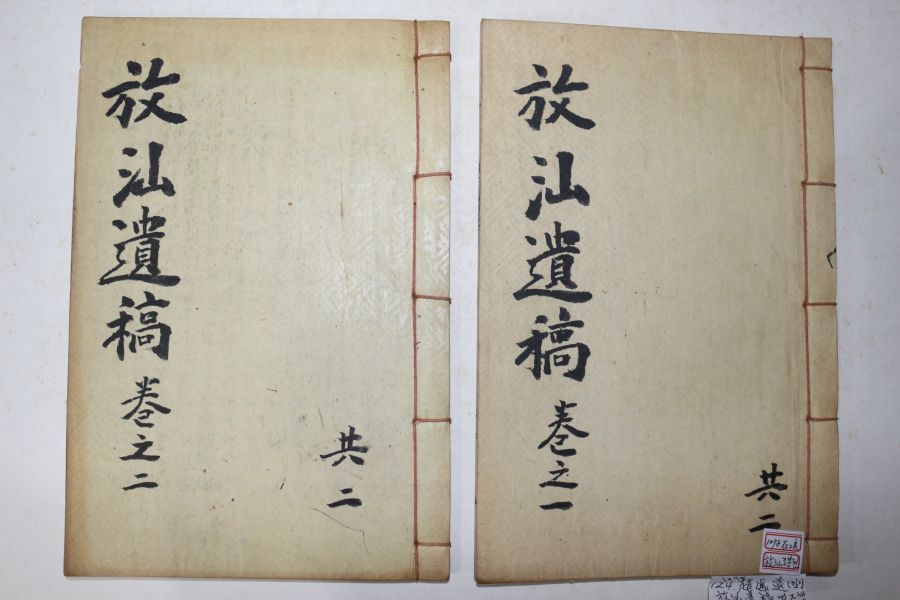 放汕遺稿 卷之一
共二
放汕遺稿 卷之二
共二